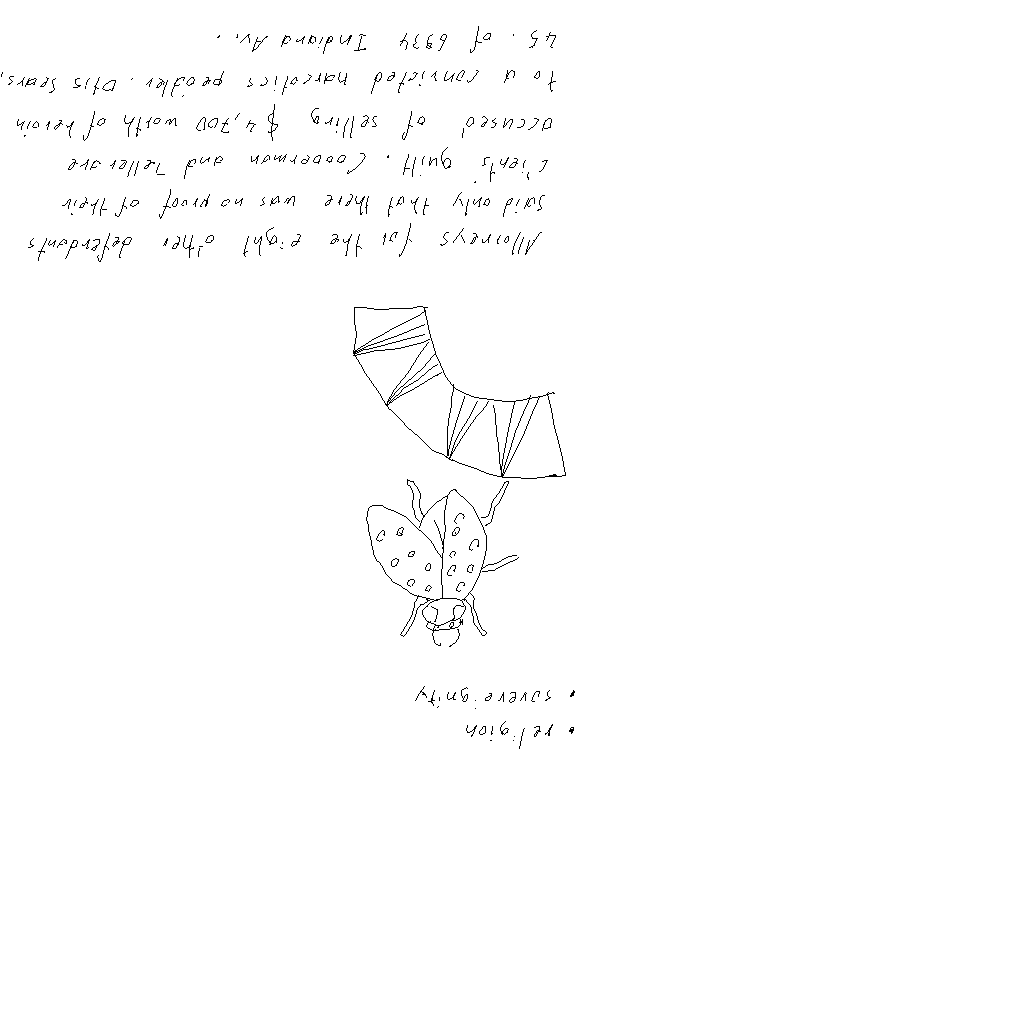 • religion
• sovereignity
Attorneys for the eight other defendants
said only that there was no proof of their
clients' guilt. Cooperman and Teller are
accused of selling $4,700 worth of heroin
to a convicted narcotics peddler. Otis Sears,
45. of 6934 Indiana Av..